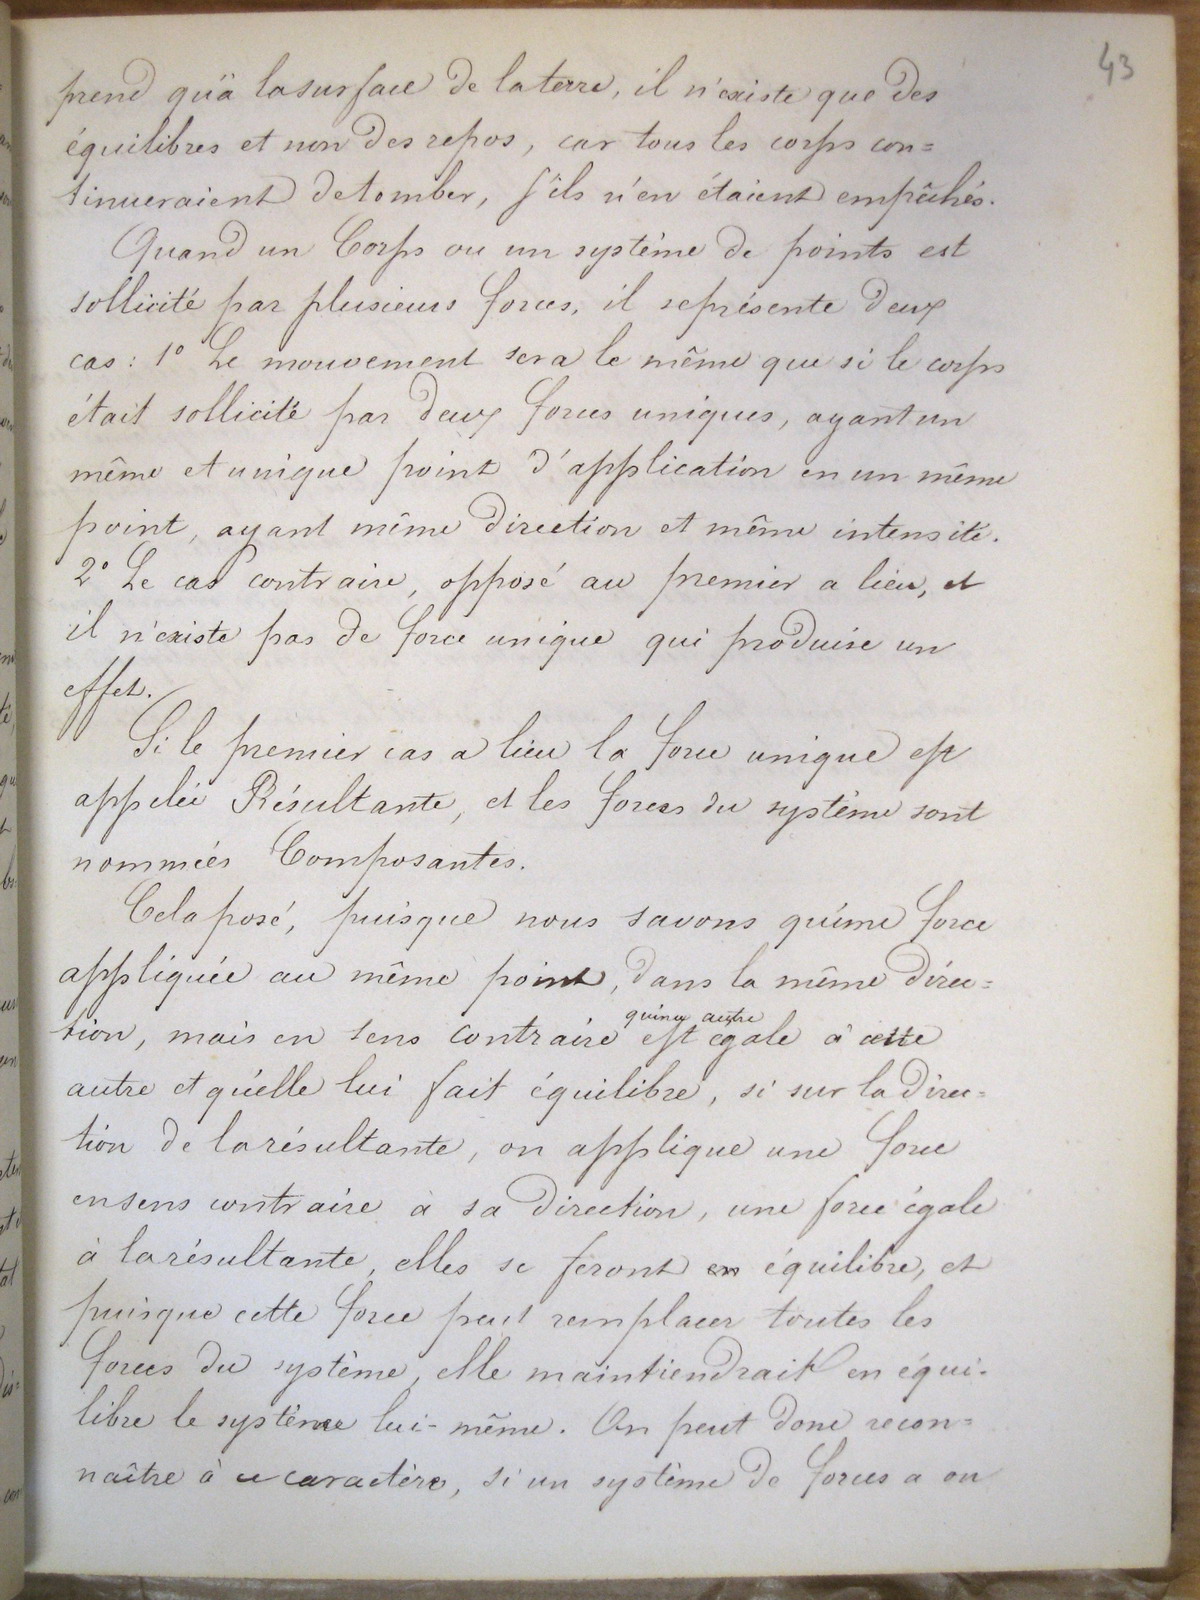 43
prend qu'à la surface de la terre, il n'existe que des
équilibres et non des repos, car tous les corps con=
tinueraient de tomber, s'ils n'en étaient empêchés.
Quand un Corps ou un système de points est
sollicité par plusieurs forces, il se présente deux
cas : 1° Le mouvement sera le même que si le corps
était sollicité par deux forces uniques, ayant un
même et unique point d'application en un même
point, ayant même direction et même intensité.
2° Le cas contraire, opposé au premier a lieu, et
il n'existe pas de force unique qui produise un
effet.
Si le premier cas a lieu la force unique est
appelée Résultante, et les forces du système sont
nommées Composantes.
Cela posé, puisque nous savons qu'une force
appliquée au même point, dans la même direc=
qu'une autre
tion, mais en sens contraire est égale à cette
autre et qu'elle lui fait équilibre, si sur la direc=
tion de la résultante, on applique une force
en sens contraire à sa direction, une force égale
à la résultante, elles se feront en équilibre, et
puisque cette force peut remplacer toutes les
forces du système, elle maintiendrait en équi-
libre le système lui-même. On peut donc recon=
naître à ce caractère, si un système de forces a ou